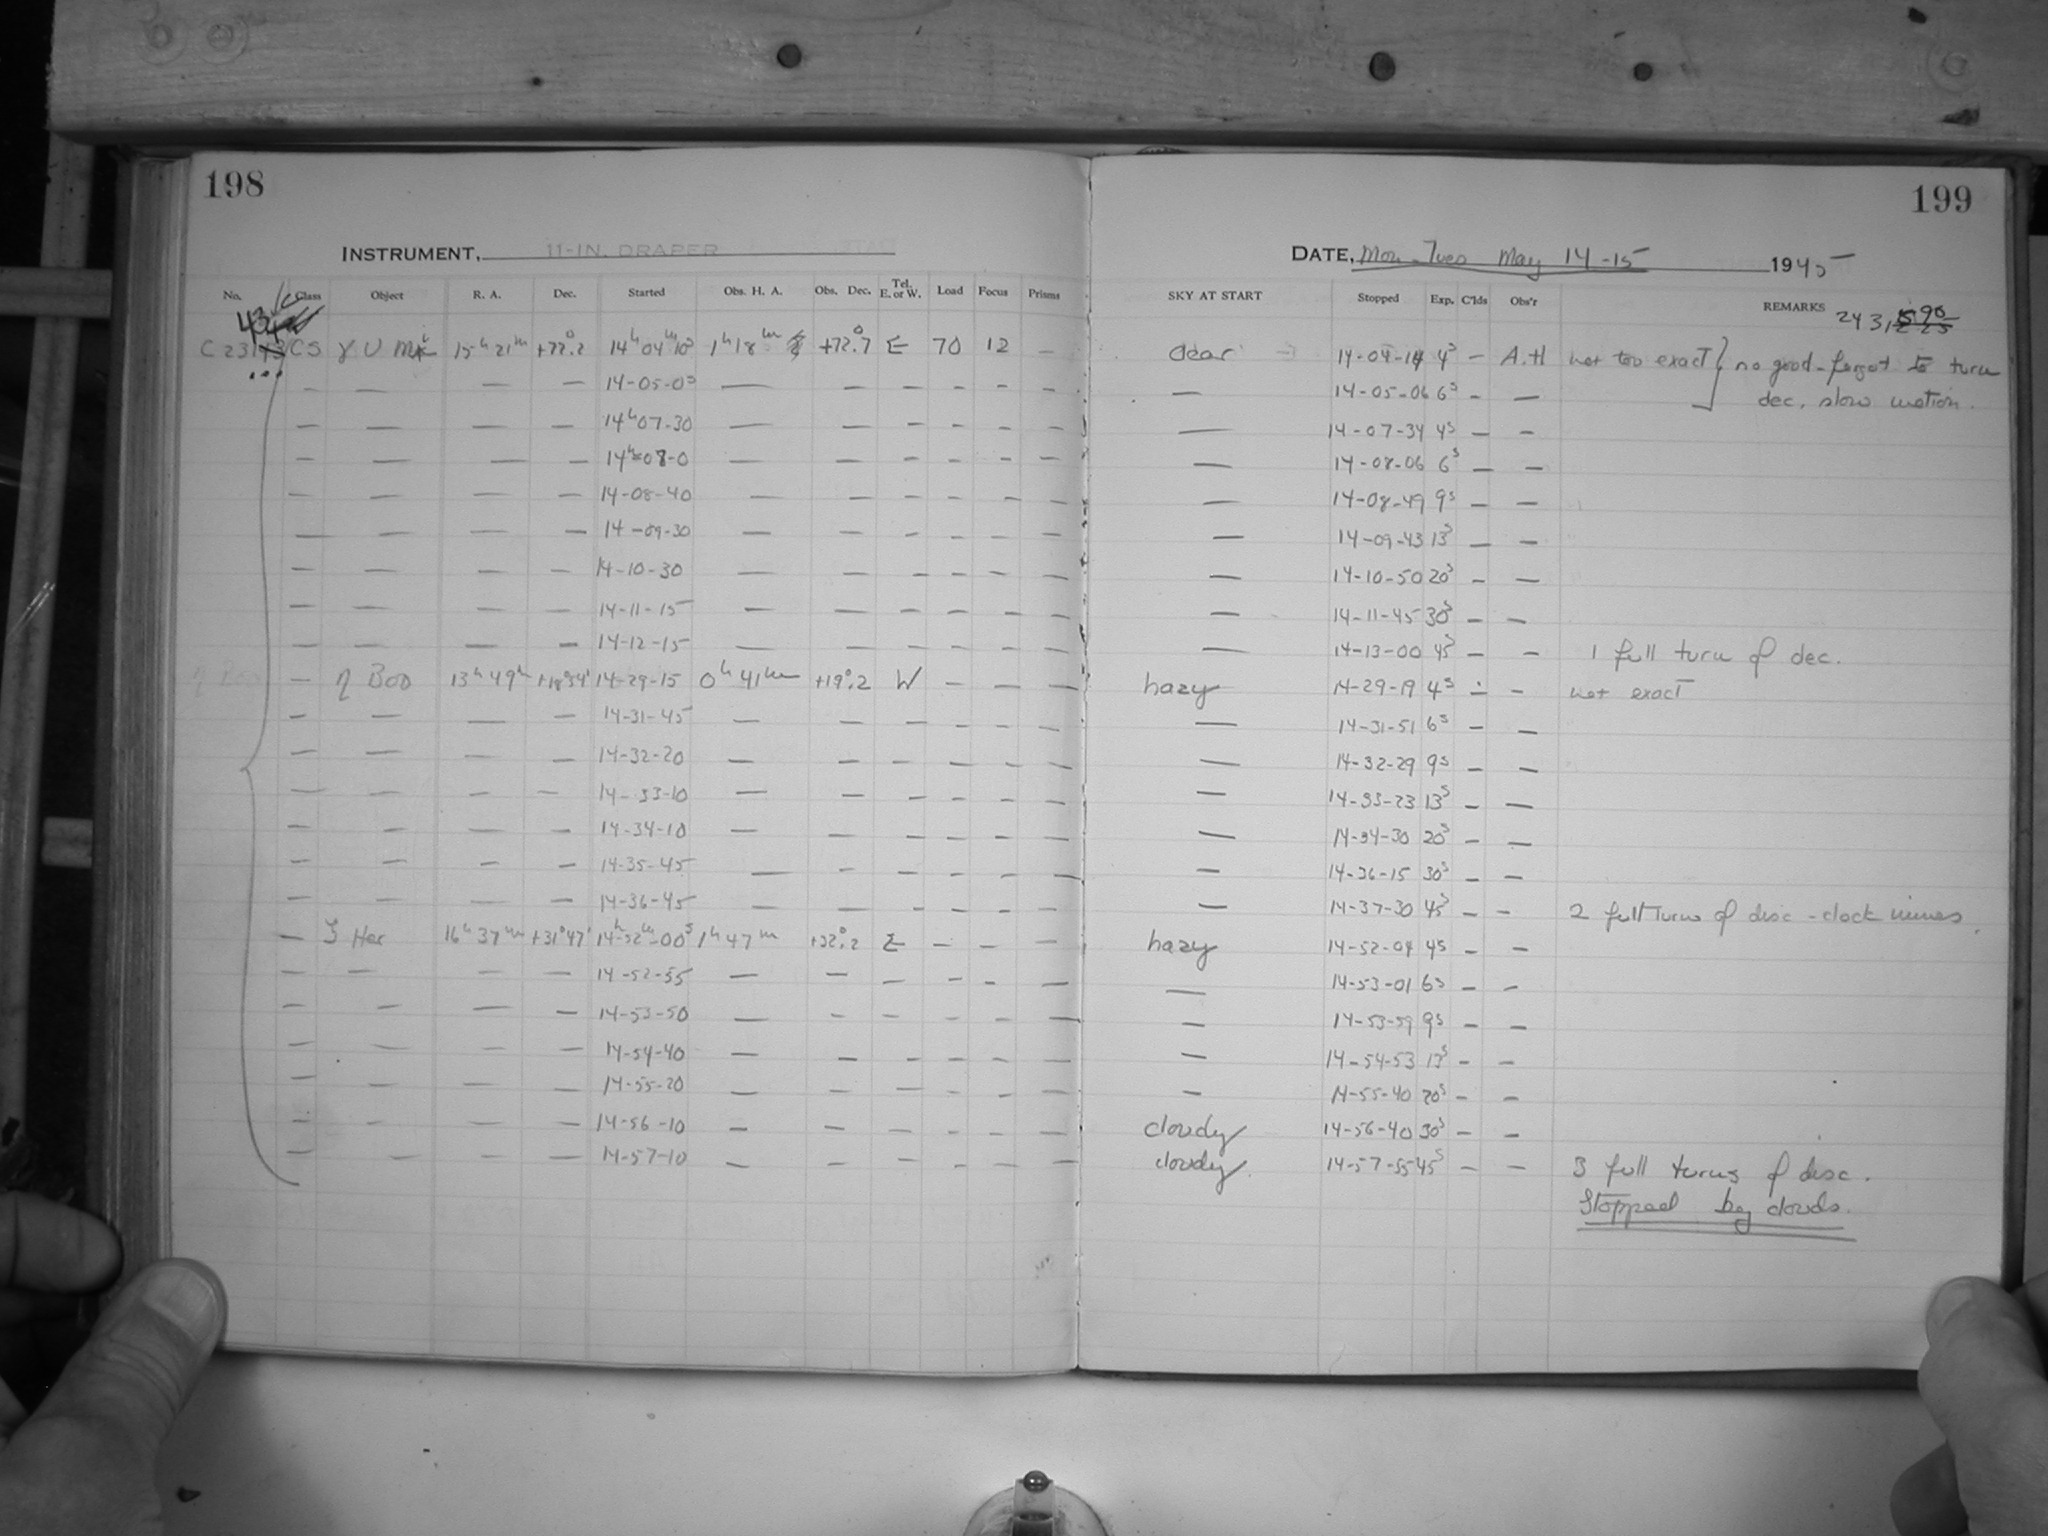 198
INSTRUMENT, 11-IN. DRAPER
No. Class Object R. A. Dec. Started Obs. H. A. Obs. Dec. Tel. E. or W. Load Focus Prisms
CS γ U Mi 15h 21m +72°.2 14h 04m 10s 1h 18m +72°.7 E 70 12 —
— — — — 14-05-0s — — — — — —
— — — — 14h 07-30 — — — — — —
— — — — 14h-08-0 — — — — — —
— — — — 14-08-40 — — — — — —
— — — — 14-09-30 — — — — — —
— — — — 14-10-30 — — — — — —
— — — — 14-11-15 — — — — — —
— — — — 14-12-15 — — — — — —
— η Boo 13h 49m 14-29-15 0h 41m +19°.2 W — — —
— — — — 14-31-45 — — — — — —
— — — — 14-32-20 — — — — — —
— — — — 14-33-10 — — — — — —
— — — — 14-34-10 — — — — — —
— — — — 14-35-45 — — — — — —
— — — — 14-36-45 — — — — — —
— ζ Her 16h 37m +31°47' 14h-52m-00s 1h 47m +32°.2 E — — —
— — — — 14-52-55 — — — — — —
— — — — 14-53-50 — — — — — —
— — — — 14-54-40 — — — — — —
— — — — 14-55-20 — — — — — —
— — — — 14-56-10 — — — — — —
— — — — 14-57-10 — — — — — —
199
DATE, Mon-Tues May 14-15 1945
SKY AT START Stopped Exp. C'lds Obs'r REMARKS
clear 14-04-14 4s — A.H not too exact } no good - forgot to turn
— 14-05-06 6s — — dec. slow motion.
— 14-07-34 4s — —
— 14-08-06 6s — —
— 14-08-49 9s — —
— 14-09-43 13s — —
— 14-10-50 20s — —
— 14-11-45 30s — —
— 14-13-00 45s — — 1 full turn of dec.
hazy 14-29-19 4s — — not exact
— 14-31-51 6s — —
— 14-32-29 9s — —
— 14-33-23 13s — —
— 14-34-30 20s — —
— 14-36-15 30s — —
— 14-37-30 45s — — 2 full turns of disc - clock
hazy 14-52-04 4s — —
— 14-53-01 6s — —
— 14-53-59 9s — —
— 14-54-53 13s — —
— 14-55-40 20s — —
cloudy 14-56-40 30s — —
cloudy. 14-57-55 45s — — 3 full turns of disc.
Stopped by clouds.